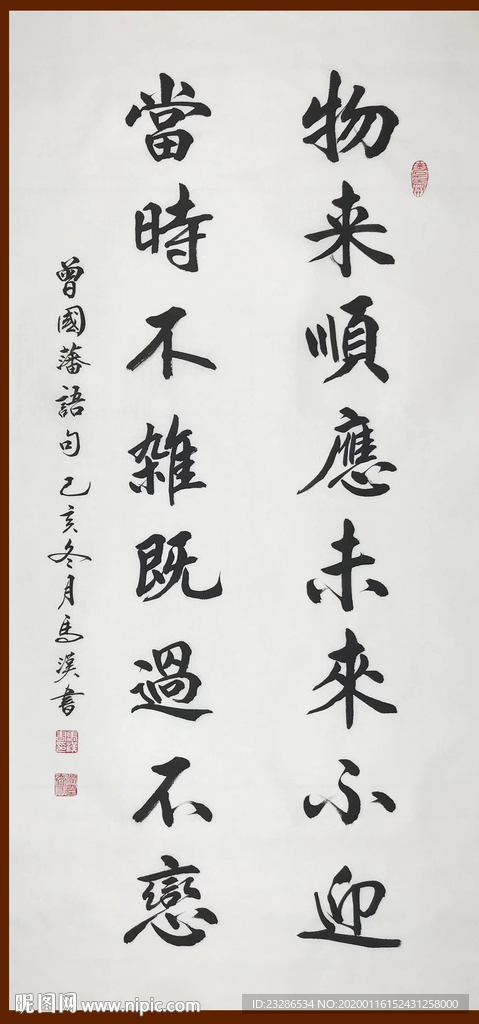 物来順應未來不迎
當時不雑既過不戀
曾國藩語句 己亥冬月馬漢書
昵图网 www.nipic.com
ID:23286534 NO:20200116152431258000